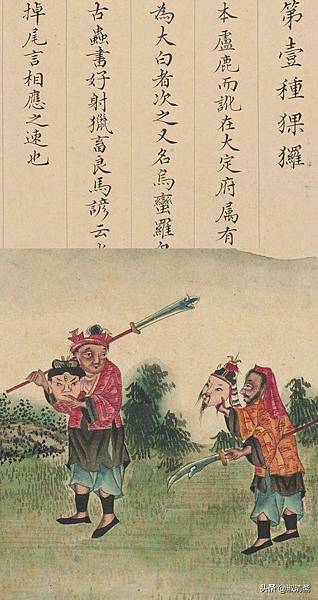 第壹種猓玀
本盧鹿而訛在大定府属有
為大白者次之又名烏蠻羅
古蟲書好射獵畜良馬諺云
掉尾言相應之速也
头条@傲娇斋